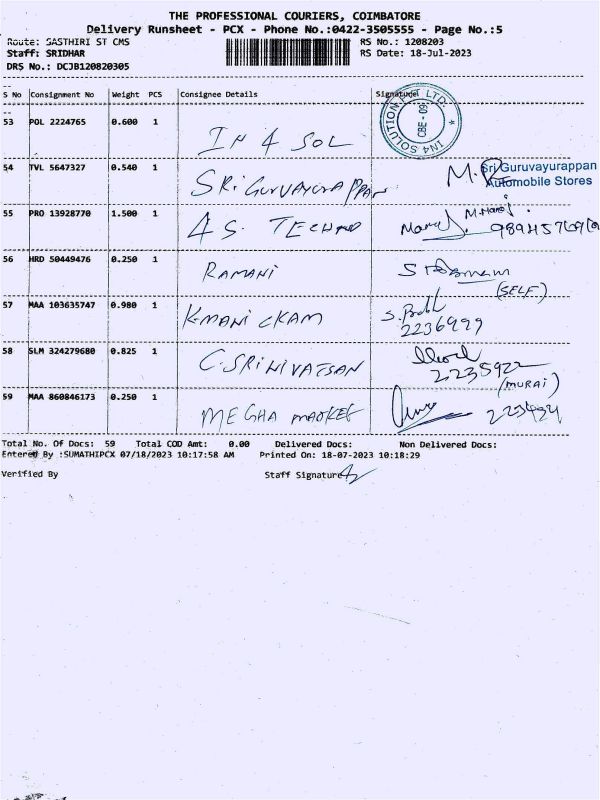 THE PROFESSIONAL COURIERS, COIMBATORE
Delivery Runsheet - PCX - Phone No.:0422-3505555 - Page No.:5
Route: SASTHIRI ST CMS RS No.: 1208203
Staff: SRIDHAR RS Date: 18-Jul-2023
DRS No.: DCJB120820305
S No Consignment No Weight PCS Consignee Details Signature
53 POL 2224765 0.600 1 IN 4 SOL IN4 SOLUTION PVT LTD. CBE - 09
54 TVL 5647327 0.540 1 SRi GURVAYURAPPAN Sri Guruvayurappan
Automobile Stores
55 PRO 13928770 1.500 1 4S. TECHNO
56 HRD 50449476 0.250 1 RAMANi
(SELF)
57 MAA 103635747 0.980 1 K-MANiCKAM
2236999
58 SLM 324279680 0.825 1 C.SRINIVATSAN
2235922
59 MAA 860846173 0.250 1 MEGHA MARKET
Total No. Of Docs: 59 Total COD Amt: 0.00 Delivered Docs: Non Delivered Docs:
Entered By :SUMATHIPCX 07/18/2023 10:17:58 AM Printed On: 18-07-2023 10:18:29
Verified By Staff Signature